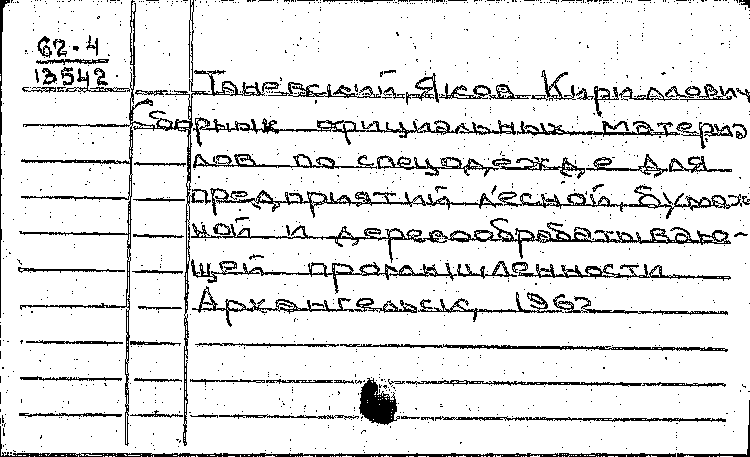 62-4
13542
Таневский, Яков Кириллович
Сборник официальных материа
лов по спецодежде для
предприятий лесной, бумаж
ной и деревообрабатываю-
щей промышленности
Архангельск, 1962